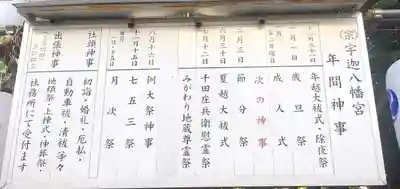 ㊪宇迦八幡宮
年間神事
十二月三十一日 年越大祓式・除夜祭
一月一日 歳旦祭
第二月曜日 成人式
次の神事
二月三日 節分祭
六月三十日 夏越大祓式
七月十二日 千田庄兵衛慰霊祭
みがわり地蔵尊霊祭
八月十六日 例大祭神事
十一月十五日 七五三祭
毎月一日・十五日 月次祭
社頭神事 初詣・婚礼・厄払・
自動車祓・清祓 等々
出張神事 地鎮祭・上棟式・神葬祭・
社務所にて受付ます